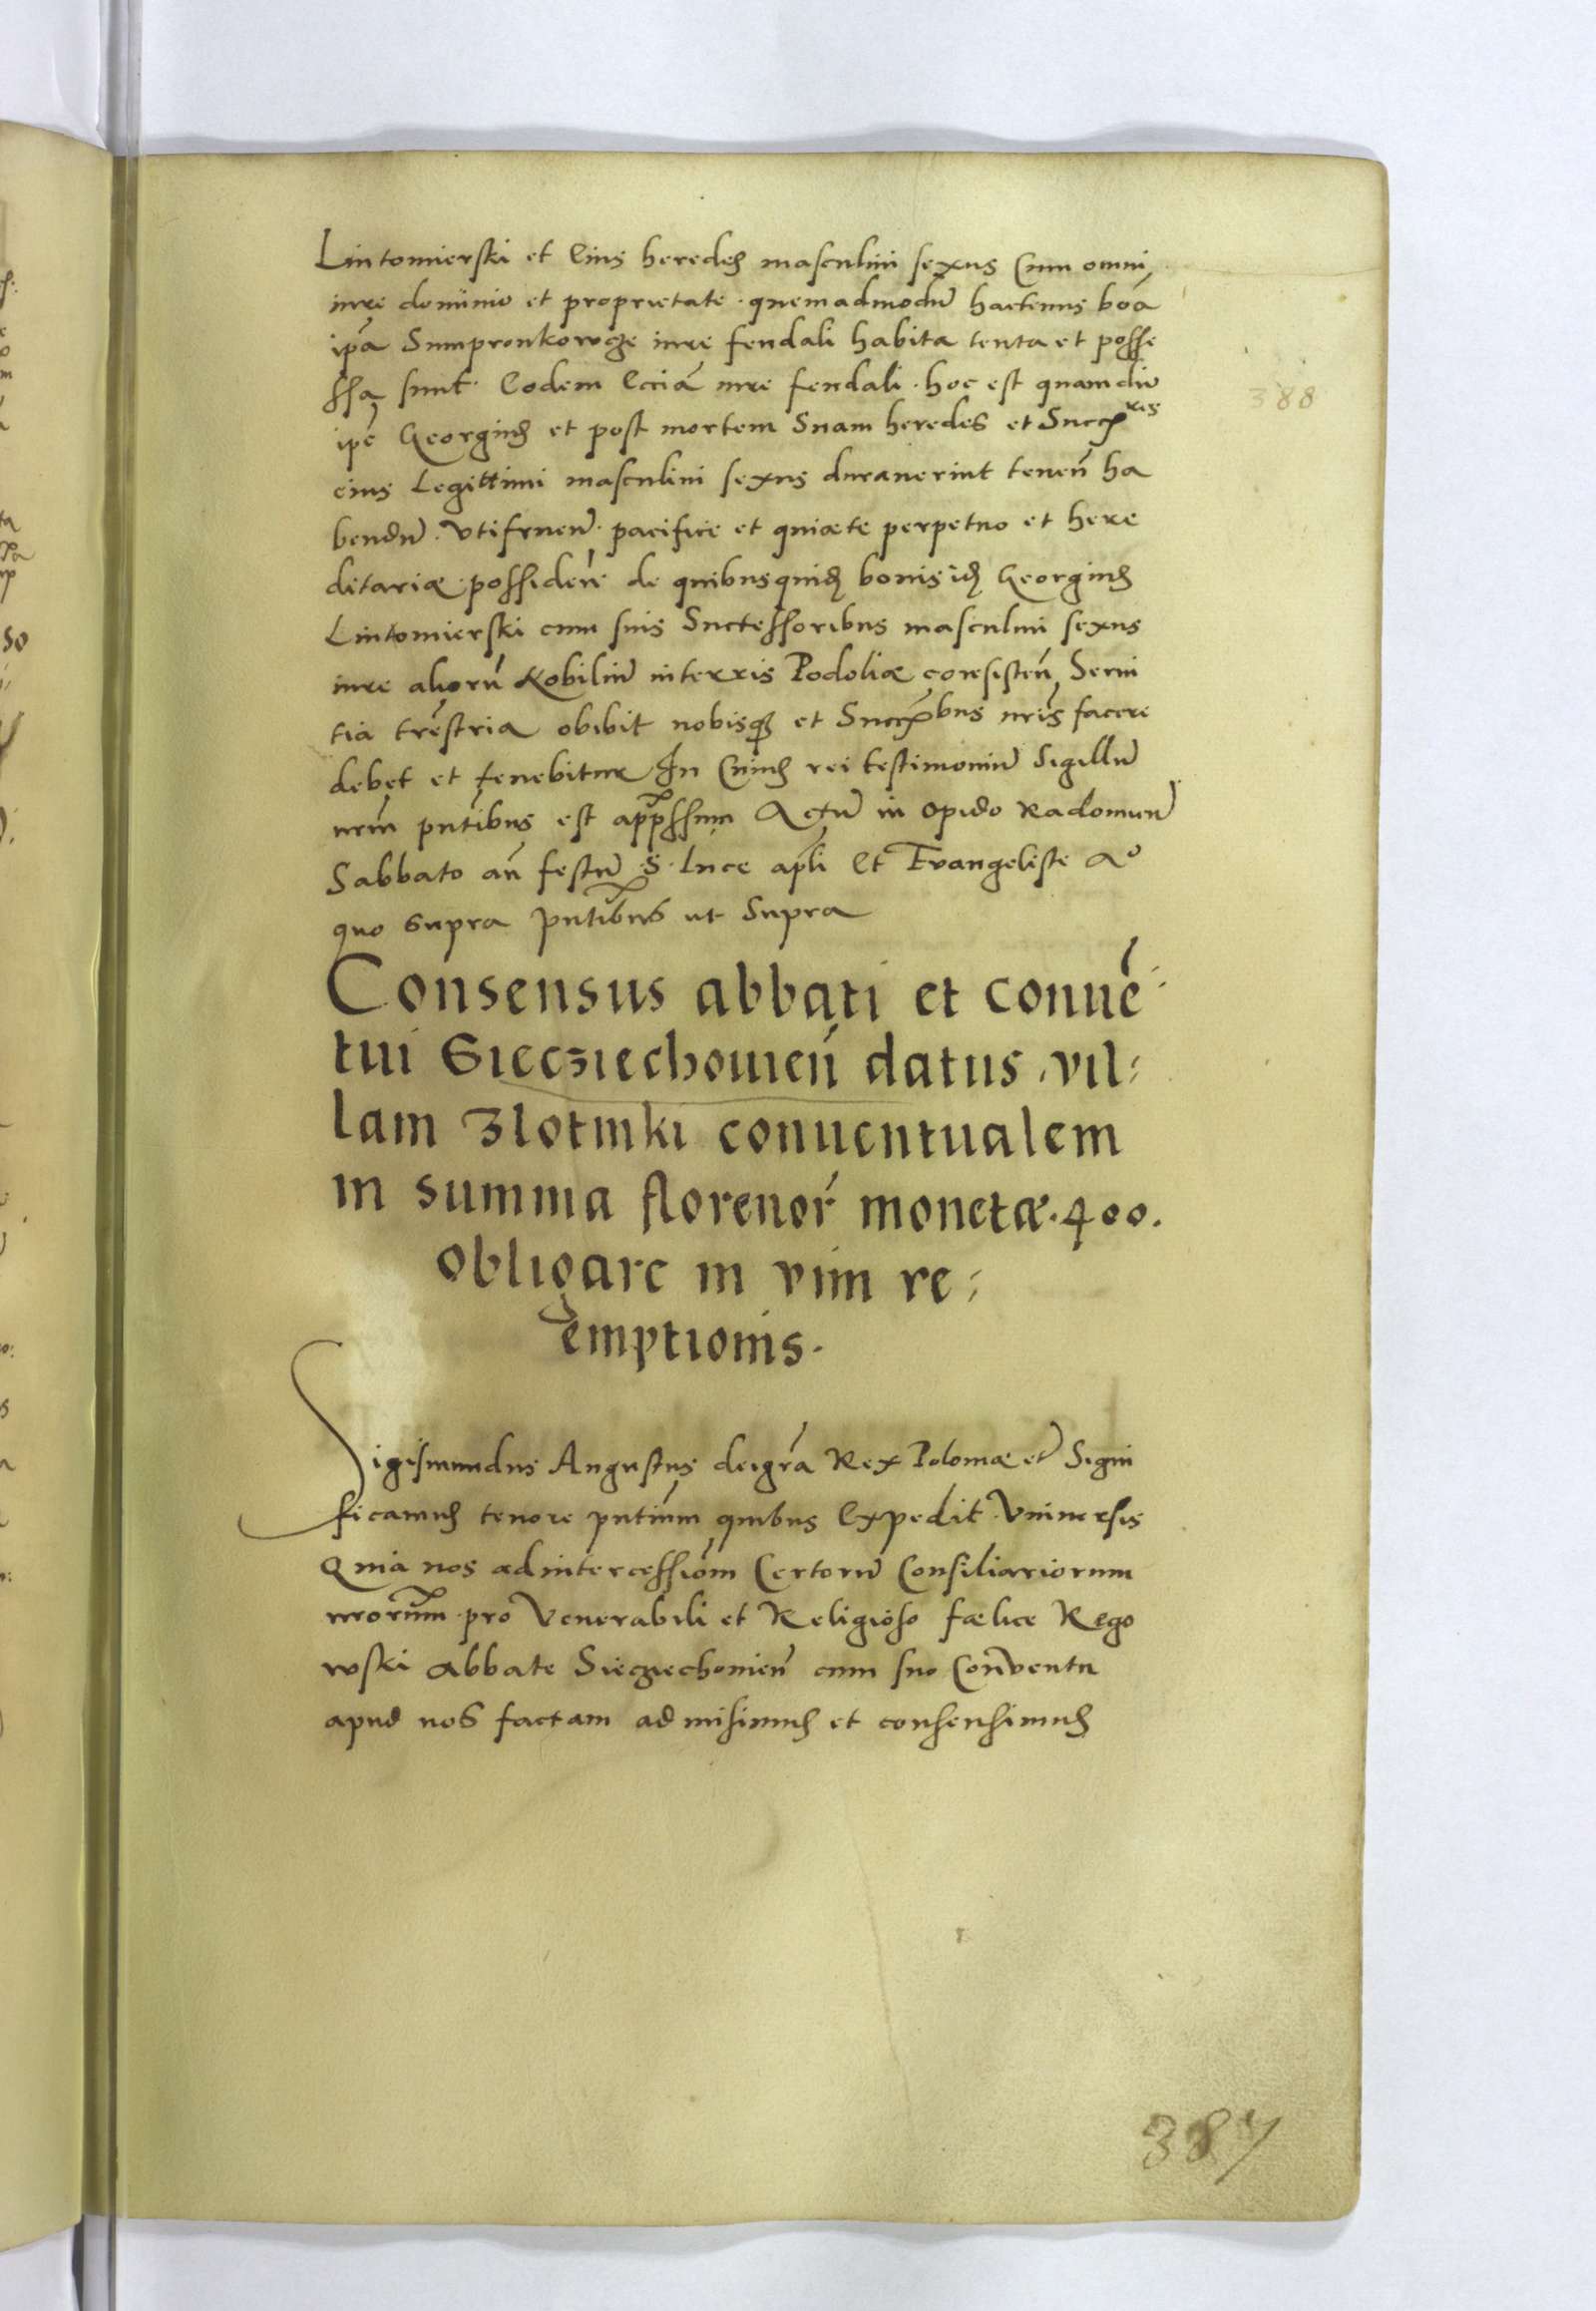 Lutomierski et eius heredes masculini sexus cum omni
iure dominio et proprietate · quemadmodũ hactenus boã
ipã Sumpronkowcze iure feudali habita tenta et posse
ssa sunt · eodem ecciã iure feudali · hoc est quamdiu
ipẽ Georgius et post mortem suam heredes et Succ̃res
eius Legittimi masculini sexus durauerint teneñ ha
bendũ · vtifrueñ · pacifice et quiæte perpetuo et here
ditariæ possideñ de quibusquid bonis id Georgius
Lutomierski cum suis Successoribus masculini sexus
iure aliorũ Nobiliũ in terris Podoliæ consisteñ Serui
tia trẽstria obibit nobisq et Succ̃bus nr̃is facere
debet et tenebitur In Cuius rei testimoniũ Sigillũ
nrm̃ pñtibus est app̃ssum Actũ in opido Radomieñ
Sabbato añ festũ S · Luce apl̃i et Evangeliste Aº
quo supra pñtibus ut Supra
Consensus abbati et conuẽ
tui Siecziechouieñ datus vil⸗
lam Zlotniki conuentualem
in summa florenor̃ monetæ · 400 ·
obligare in vim re⸗
emptionis ·
Sigismundus Augustus dei gr̃a Rex Poloniæ et̃ Signi
ficamus tenore pñtium quibus expedit Vniuersis
Quia nos ad intercessiom̃ Certorũ Consiliariorum
nrorum̃ · pro Venerabili et Religioso fælice Rego
wski Abbate Siecziechouieñ cum suo Conventu
apud nos factam admisimus et consensimus
388
387